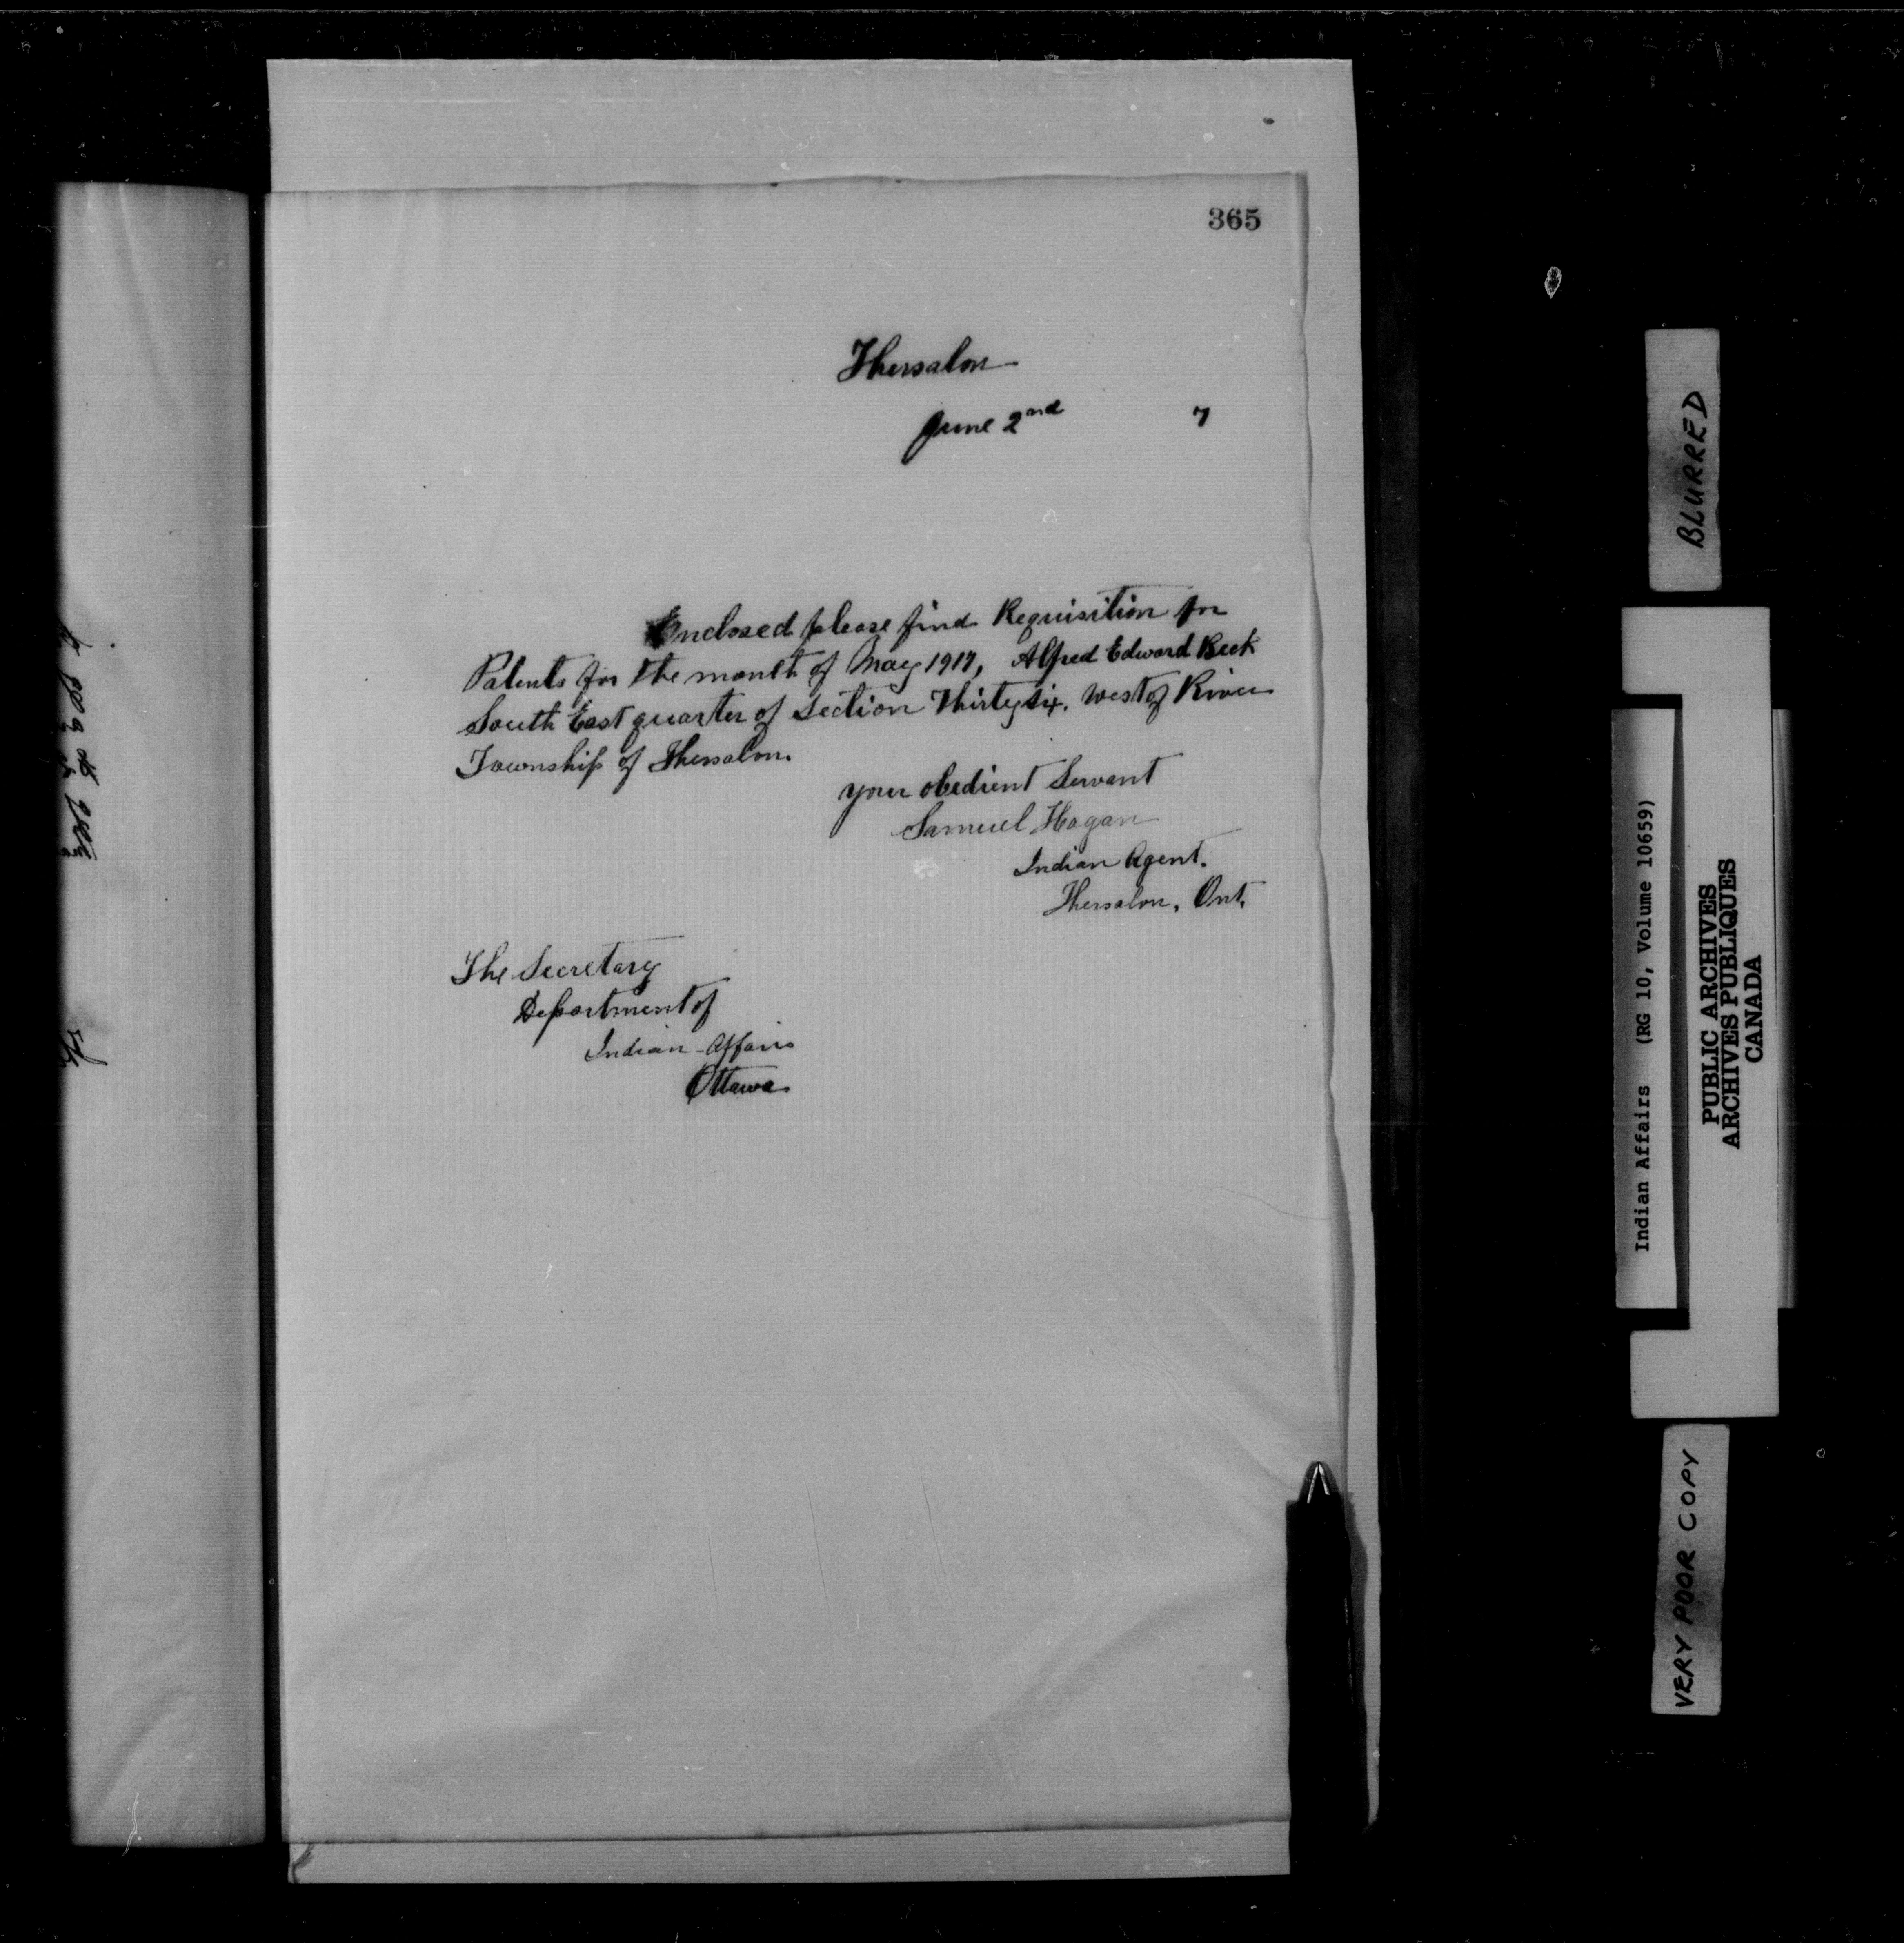 365
Thessalon
June 2nd 7
Enclosed please find Requisition for
Patents for the month of May 1917, Alfred Edward Beck
South East quarter of Section Thirty six. West of River
Township of Thessalon.
your obedient Servant
Samuel Hagan
Indian Agent.
Thessalon, Ont.
The Secretary
Department of
Indian Affairs
Ottawa
BLURRED
Indian Affairs (RG 10, Volume 10659)
PUBLIC ARCHIVES
ARCHIVES PUBLIQUES
CANADA
VERY POOR COPY